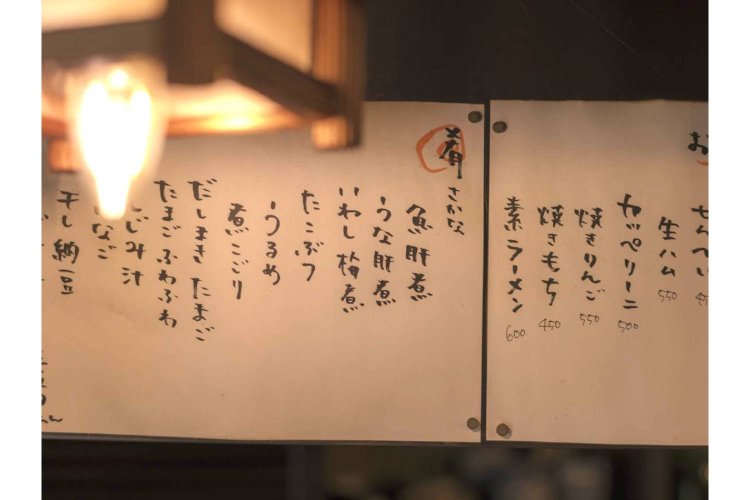 お
せんべい
生ハム 550
カッペリーニ 500
焼きりんご 550
焼きもち 450
素ラーメン 600
肴 さかな
魚肝煮
うな肝煮
いわし梅煮
たこぶつ
うるめ
煮こごり
だしまきたまご
たまごふわふわ
じみ汁
なご
干し納豆